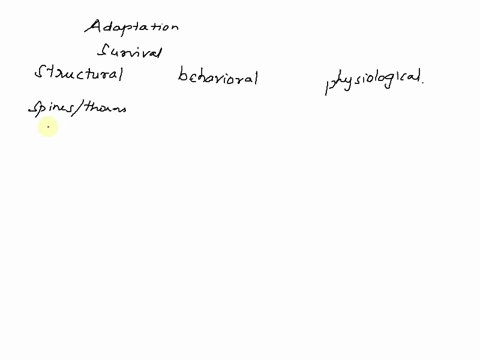 Adaptation
Survival
Structural behavioral physiological.
Spines/thorns